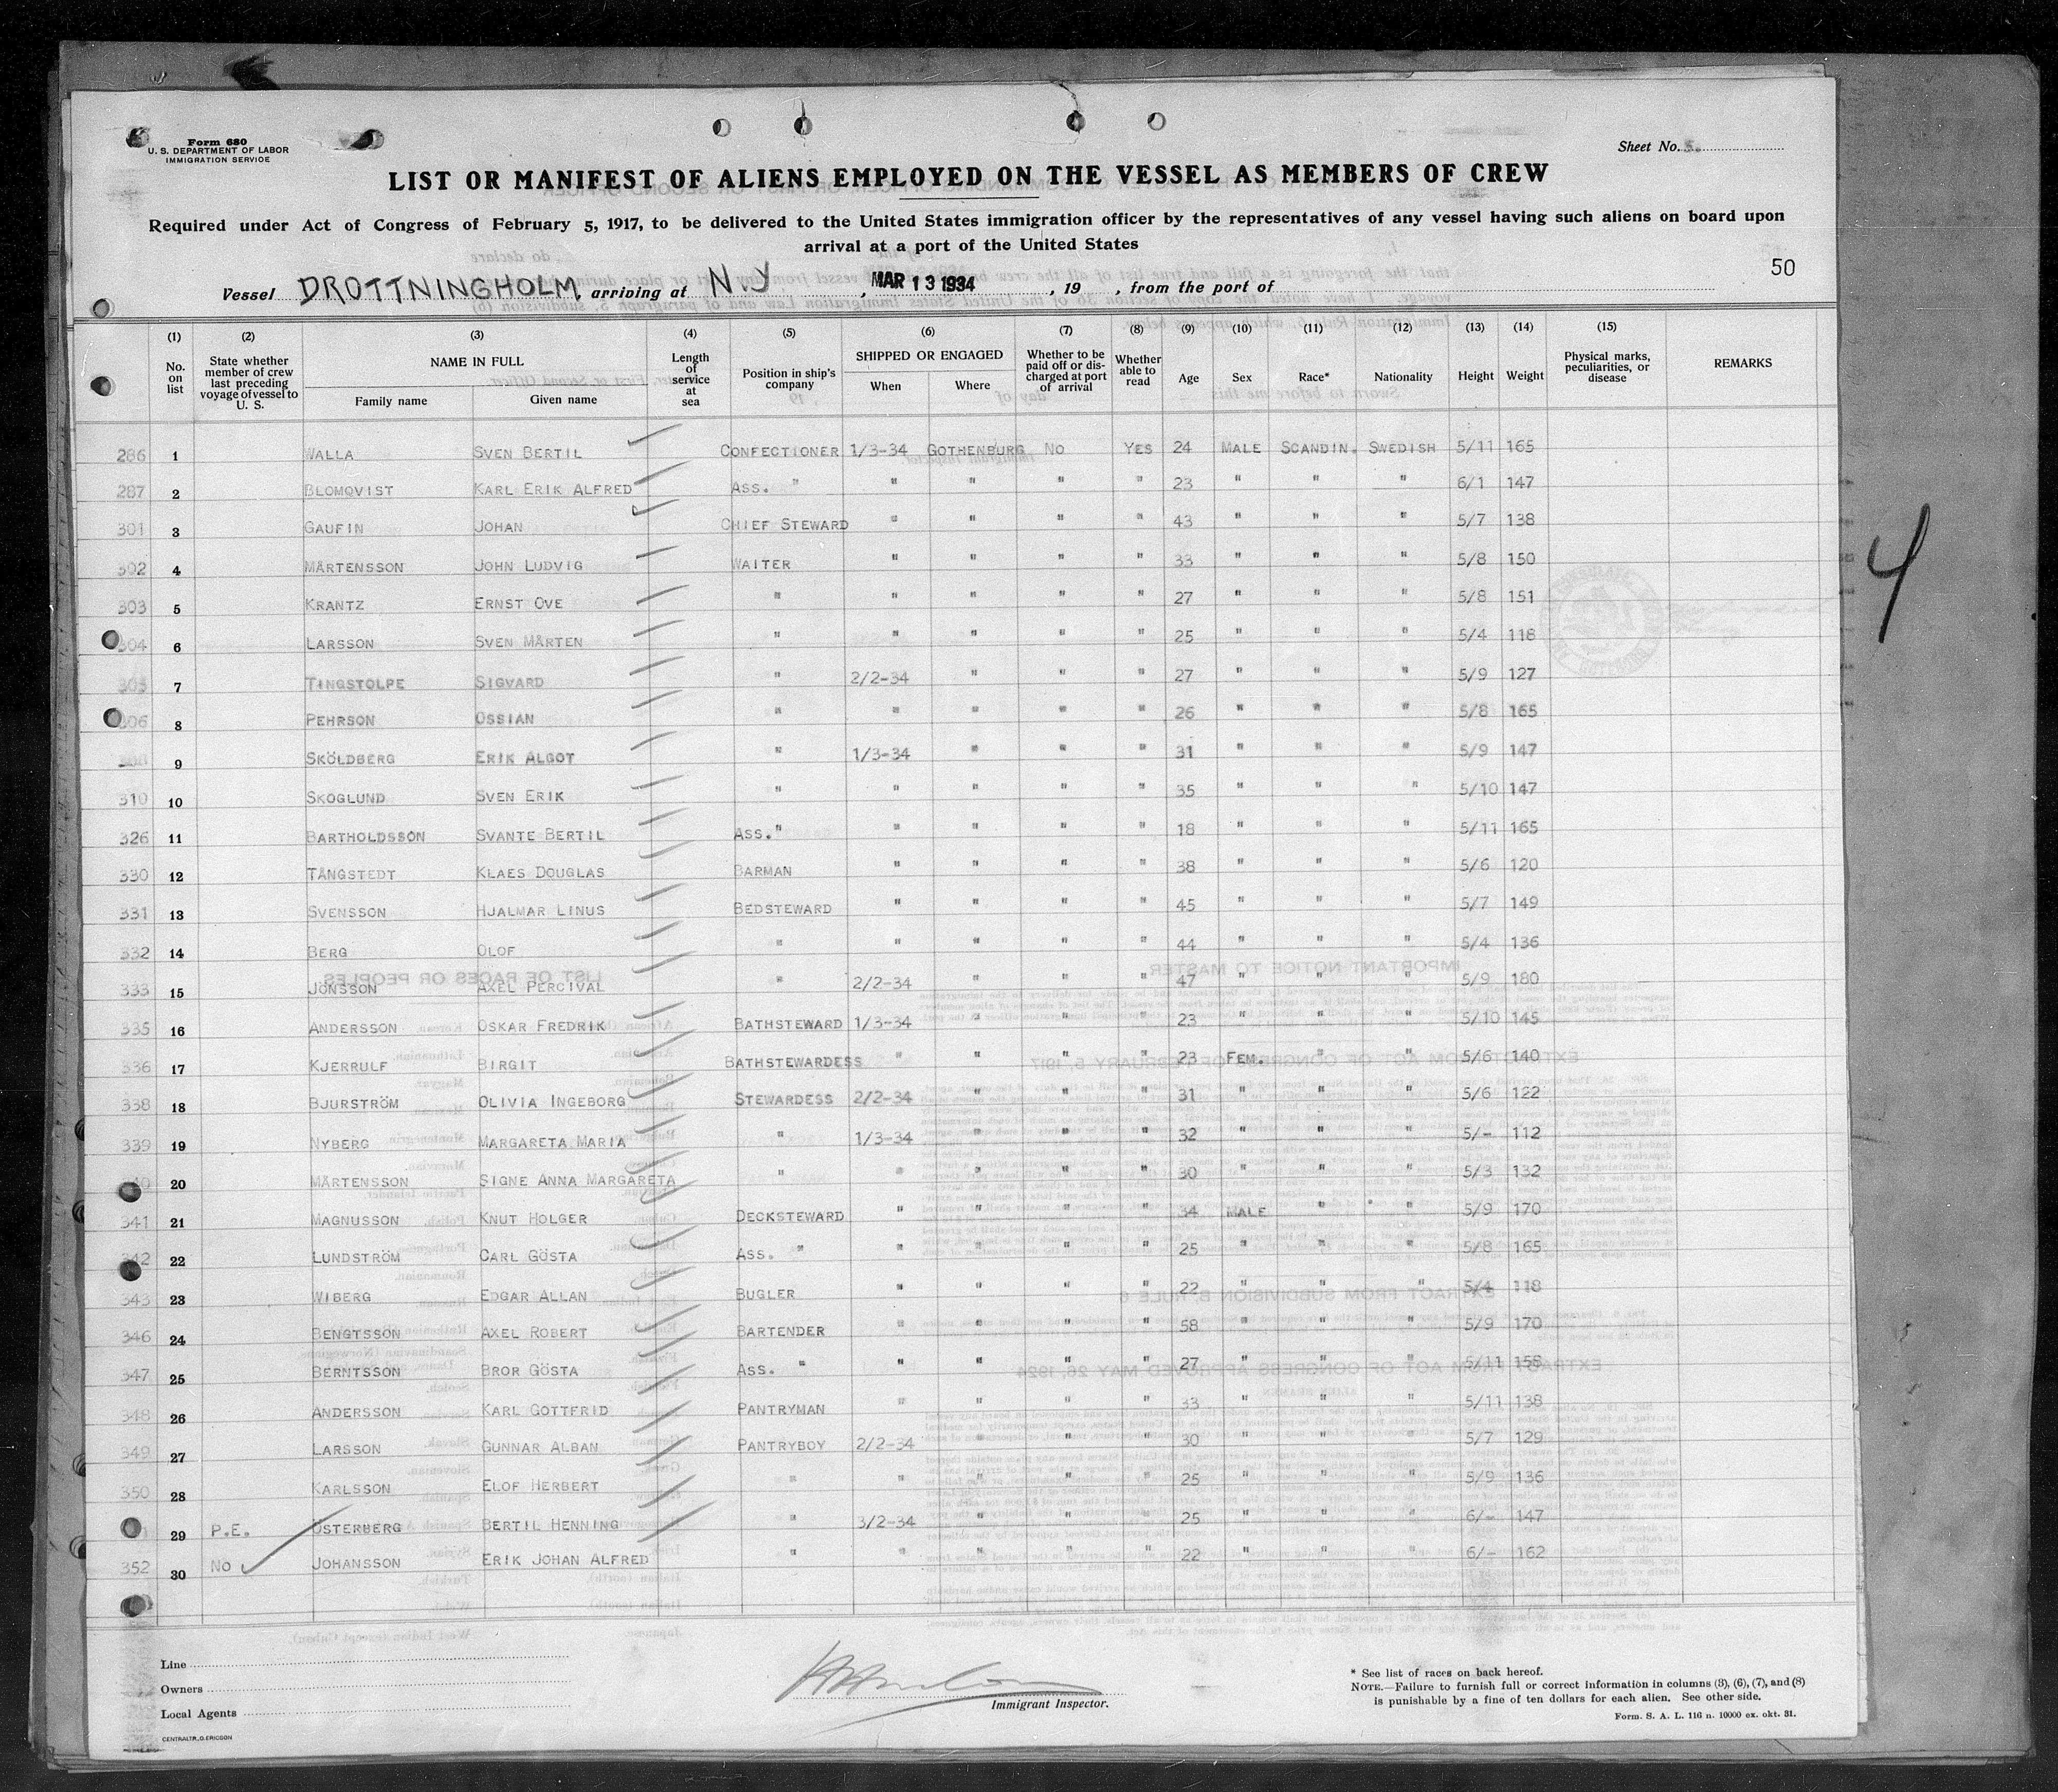 Form 680
U. S. DEPARTMENT OF LABOR
IMMIGRATION SERVICE
Sheet No. 5.
LIST OR MANIFEST OF ALIENS EMPLOYED ON THE VESSEL AS MEMBERS OF CREW
Required under Act of Congress of February 5, 1917, to be delivered to the United States immigration officer by the representatives of any vessel having such aliens on board upon
arrival at a port of the United States
50
Vessel DROTTNINGHOLM, arriving at N.Y, MAR 13 1934, 19 , from the port of
(1) (2) (3) (4) (5) (6) (7) (8) (9) (10) (11) (12) (13) (14) (15)
No. on list State whether member of crew last preceding voyage of vessel to U. S. NAME IN FULL Family name Given name Length of service at sea Position in ship's company SHIPPED OR ENGAGED When Where Whether to be paid off or discharged at port of arrival Whether able to read Age Sex Race* Nationality Height Weight Physical marks, peculiarities, or disease REMARKS
286 1 WALLA SVEN BERTIL CONFECTIONER 1/3-34 GOTHENBURG NO YES 24 MALE SCANDIN. SWEDISH 5/11 165
287 2 BLOMQVIST KARL ERIK ALFRED ASS. " " " " " 23 " " " 6/1 147
301 3 GAUFIN JOHAN CHIEF STEWARD " " " " 43 " " " 5/7 138
302 4 MÅRTENSSON JOHN LUDVIG WAITER " " " " 33 " " " 5/8 150
303 5 KRANTZ ERNST OVE " " " " " 27 " " " 5/8 151
304 6 LARSSON SVEN MÅRTEN " " " " " 25 " " " 5/4 118
305 7 TINGSTOLPE SIGVARD " 2/2-34 " " " 27 " " " 5/9 127
306 8 PEHRSON OSSIAN " " " " " 26 " " " 5/8 165
9 SKÖLDBERG ERIK ALGOT " 1/3-34 " " " 31 " " " 5/9 147
310 10 SKOGLUND SVEN ERIK " " " " " 35 " " " 5/10 147
326 11 BARTHOLDSSON SVANTE BERTIL ASS." " " " " 18 " " " 5/11 165
330 12 TÅNGSTEDT KLAES DOUGLAS BARMAN " " " " 38 " " " 5/6 120
331 13 SVENSSON HJALMAR LINUS BEDSTEWARD " " " " 45 " " " 5/7 149
332 14 BERG OLOF " " " " " 44 " " " 5/4 136
333 15 JONSSON AXEL PERCIVAL " 2/2-34 " " " 47 " " " 5/9 180
335 16 ANDERSSON OSKAR FREDRIK BATHSTEWARD 1/3-34 " " " 23 " " " 5/10 145
336 17 KJERRULF BIRGIT BATHSTEWARDESS " " " " 23 FEM. " " 5/6 140
338 18 BJURSTRÖM OLIVIA INGEBORG STEWARDESS 2/2-34 " " " 31 " " " 5/6 122
339 19 NYBERG MARGARETA MARIA " 1/3-34 " " " 32 " " " 5/- 112
20 MÅRTENSSON SIGNE ANNA MARGARETA " " " " " 30 " " " 5/3 132
341 21 MAGNUSSON KNUT HOLGER DECKSTEWARD " " " " 34 MALE " " 5/9 170
342 22 LUNDSTRÖM CARL GÖSTA ASS. " " " " " 25 " " " 5/8 165
343 23 WIBERG EDGAR ALLAN BUGLER " " " " 22 " " " 5/4 118
346 24 BENGTSSON AXEL ROBERT BARTENDER " " " " 58 " " " 5/9 170
347 25 BERNTSSON BROR GÖSTA ASS. " " " " " 27 " " " 5/11 158
348 26 ANDERSSON KARL GOTTFRID PANTRYMAN " " " " 33 " " " 5/11 138
349 27 LARSSON GUNNAR ALBAN PANTRYBOY 2/2-34 " " " 30 " " " 5/7 129
350 28 KARLSSON ELOF HERBERT " " " " " 25 " " " 5/9 136
29 P.E. ÖSTERBERG BERTIL HENNING " 3/2-34 " " " 25 " " " 6/- 147
352 30 NO JOHANSSON ERIK JOHAN ALFRED " " " " " 22 " " " 6/- 162
4
Line
Owners
Local Agents
Immigrant Inspector.
* See list of races on back hereof.
NOTE.—Failure to furnish full or correct information in columns (3), (6), (7), and (8)
is punishable by a fine of ten dollars for each alien. See other side.
Form. S. A. L. 116 n. 10000 ex. okt. 31.
CENTRALTR., G. ERICSON